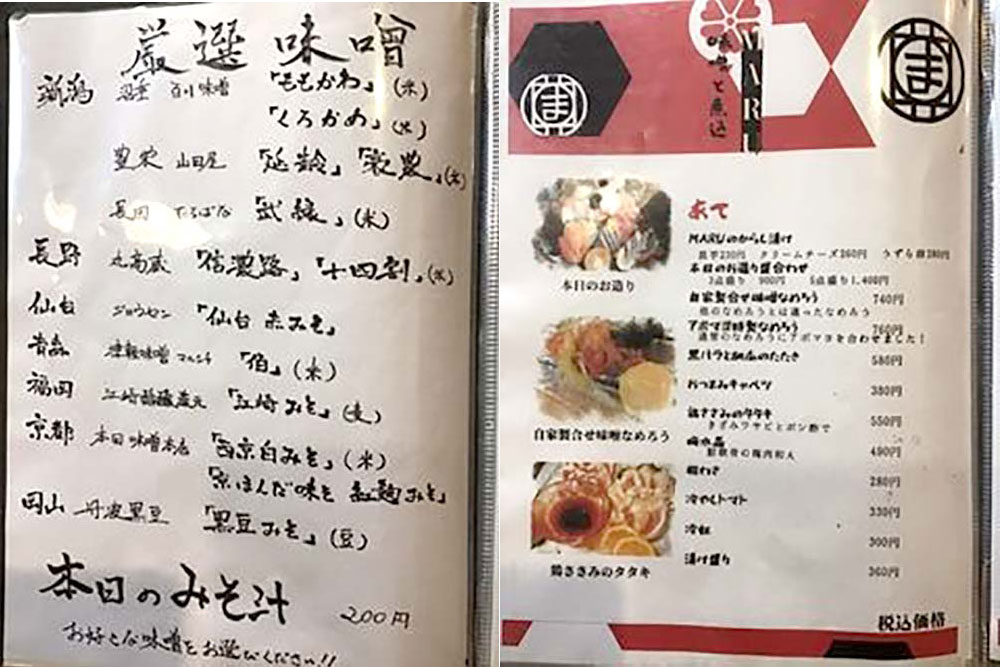 厳選味噌
新潟 百川味噌 「ももかわ」(米)
「くろかめ」(米)
豊栄 山田屋 「延齢」
長岡 たちばな (米)
長野 丸高蔵 「信濃路」「十四割」(米)
仙台 ジョウセン 「仙台 赤みそ」
青森 津軽味噌 マルシチ 「伯」(米)
福岡 「江崎みそ」(麦)
京都 本田味噌本店 「西京白みそ」(米)
「紅麹みそ」
岡山 丹波黒豆 「黒豆みそ」(豆)
本日のみそ汁 200円
お好きな味噌をお選びください!!
味噌と煮込
MARU
ま
ま
あて
MARUのからし漬け
クリームチーズ260円 うずら卵280円
本日のお造り盛合わせ
3点盛り 900円 5点盛り1,400円
自家製合せ味噌なめろう 740円
他のなめろうとは違ったなめろう
アボマヨ特製なめろう 760円
通常のなめろうにアボマヨを合わせました!
580円
おつまみキャベツ 380円
鶏ささみのタタキ 550円
きざみワサビとポン酢で
梅水晶 490円
鮫軟骨の梅肉和え
板わさ 280円
冷やしトマト 330円
冷奴 300円
漬け盛り 360円
本日のお造り
自家製合せ味噌なめろう
鶏ささみのタタキ
税込価格